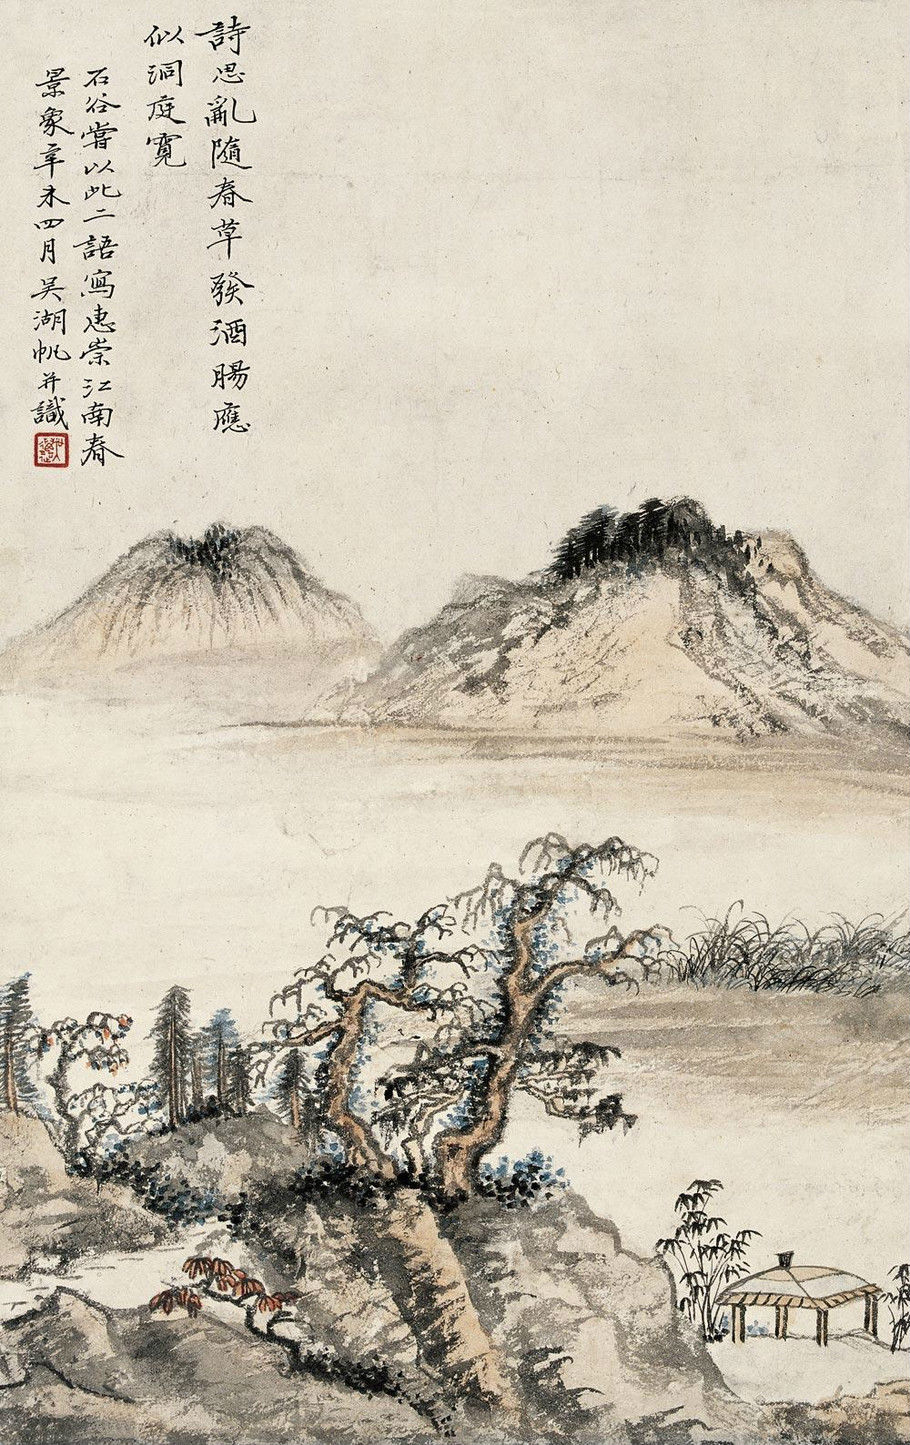 詩思亂隨春草發酒腸應
似洞庭寬
石谷嘗以此二語寫惠崇江南春
景象辛未四月吳湖帆并識